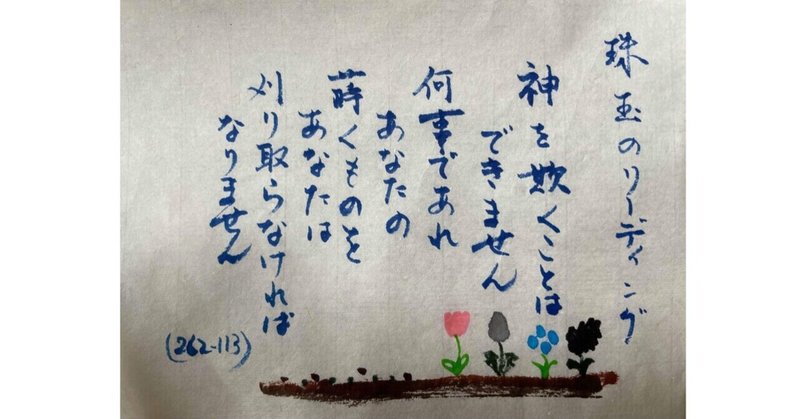 珠玉のリーディング
神を欺くことは
できません
何事であれ
あなたの
蒔くものを
あなたは
刈り取らなければ
なりません
(262-113)